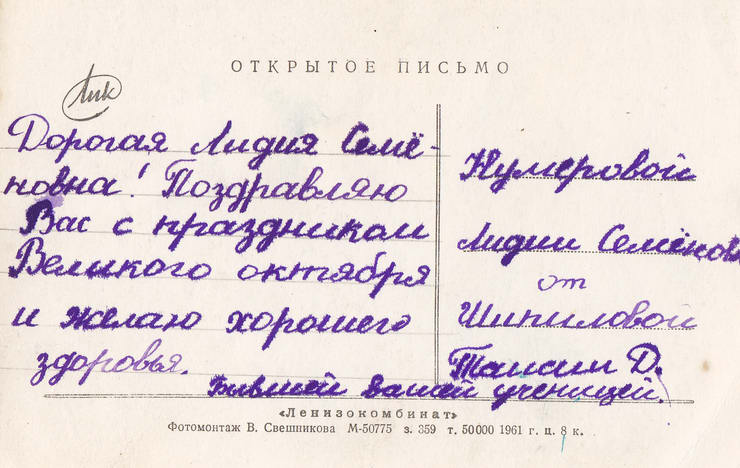 ОТКРЫТОЕ ПИСЬМО
Лик
Дорогая Лидия Семё-
новна! Поздравляю
Вас с праздником
Великого октября
и желаю хорошего
здоровья.
Нумеровой
Лидии Семёновн
от
Шипиловой
Таисии Д.
Бывшей вашей ученицей.
«Ленизокомбинат»
Фотомонтаж В. Свешникова М-50775 з. 359 т. 50000 1961 г. ц. 8 к.